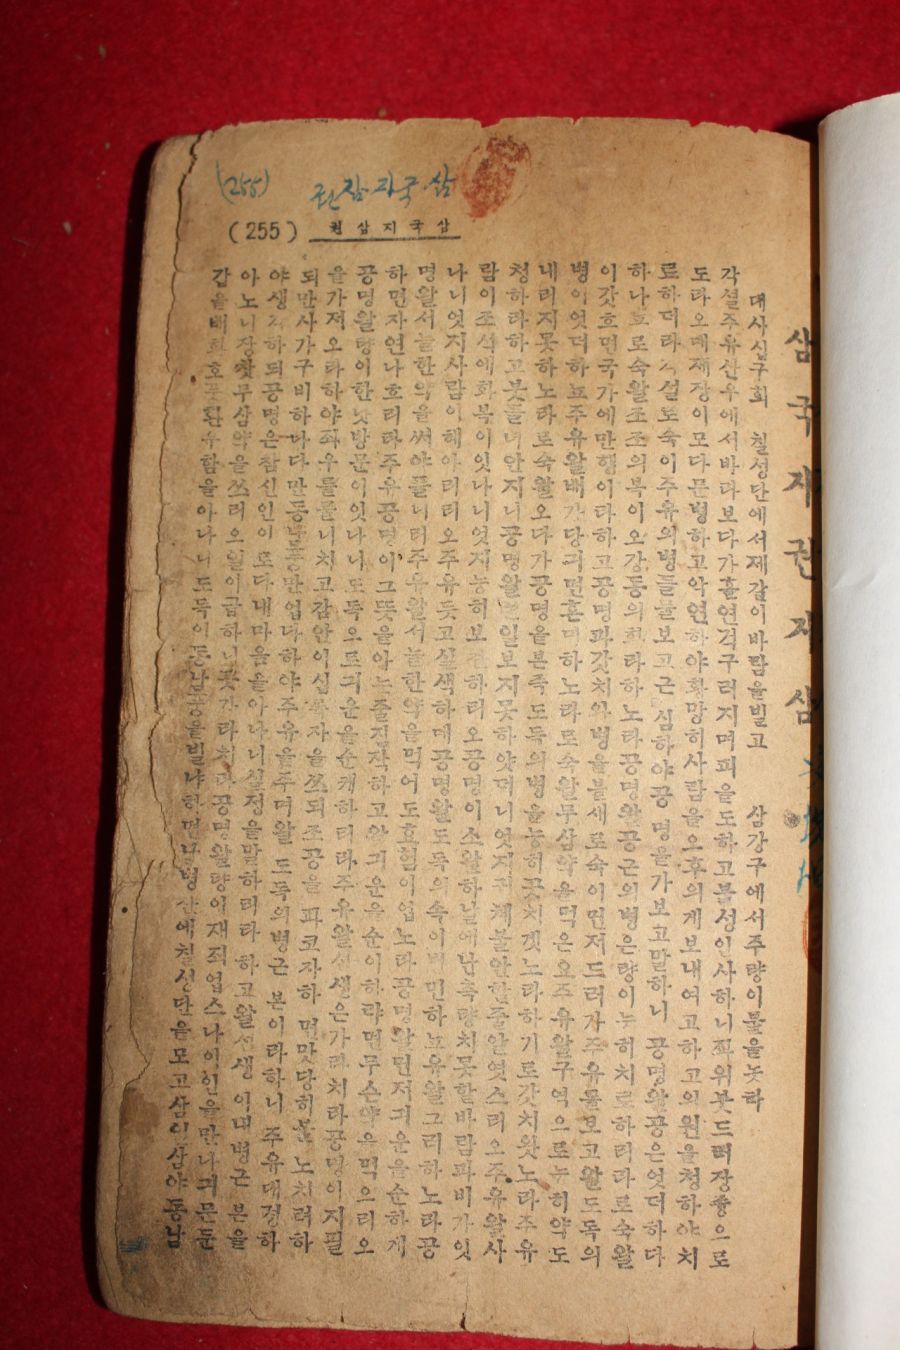 (255)
삼국지삼권
(255) 삼국지삼권
삼국지권지삼
대사십구회 칠성단에서제갈이바람을빌고 삼강구에서주량이불을놋타
각셜주유산우에서바라보다가홀연걱구러지며피을도하고불성인사하니좌위붓드러장중으로
도라오매재장이모다문병하고악연하야화망히사람을오후의게보내여고하고의원을청하야치
료하더라각셜로숙이주유의병들물보고근심하야공명을가보고말하니 공명왈공은엇더하다
하나뇨로숙왈조조의복이오강동의화라하노라공명왈공근의병은량이능히치료하리라로숙왈
이갓흐면국가에만행이라하고공명과갓치와병을볼세로숙이먼저드러가주유를보고왈도독의
병이엇더하뇨주유왈배가당긔면혼미하노라로숙왈무삼약을먹은오주유왈구역으로능히약도
내리지못하노라로숙왈오다가공명을본즉도독의병을능히곳치겟노라하기로갓치왓노라주유
청하라하고붓들녀안지니공명왈 일보지못하얏더니엇지 체불안함줄알엿스리오주유왈사
람이조석에화복이잇나니엇지능히보전하리오공명이소왈하날에난측량치못할바람과비가잇
나니엇지사람이헤아리리오주유듯고실색하매공명왈도독의속이 민하뇨유왈그러하노라공
명왈서늘한약을써야풀니리주유왈서늘한약을먹어도효험이업노라공명왈먼저긔운을순하게
하면자연나흐리라주유공명이그뜻을아는줄짐작하고왈긔운을순이하랴면무슨약을먹으리오
공명왈량이한낫방문이잇나니도독으로긔운을순케하리라주유왈선생은가라치라공명이지필
을가져오라하야좌우를물니치고감안이십륙자을쓰되조공을파코자하면맛당히불노치려하
되만사가구비하나다만동남풍만업다하야주유을주며왈 도독의병근 본이라하니주유대경하
야생각하되공명은참신인이로다내마음을아나니실정을말하리라하고왈선생 이대병근 본을
아노니장찻무삼약을쓰려오일이급하니곳가라치라공명왈량이재죄업스나이인을만나긔문둔
갑을배회호풍환우함을아나니도독이동남풍을빌냐하면남병산에칠성단을모고삼인삼야동남